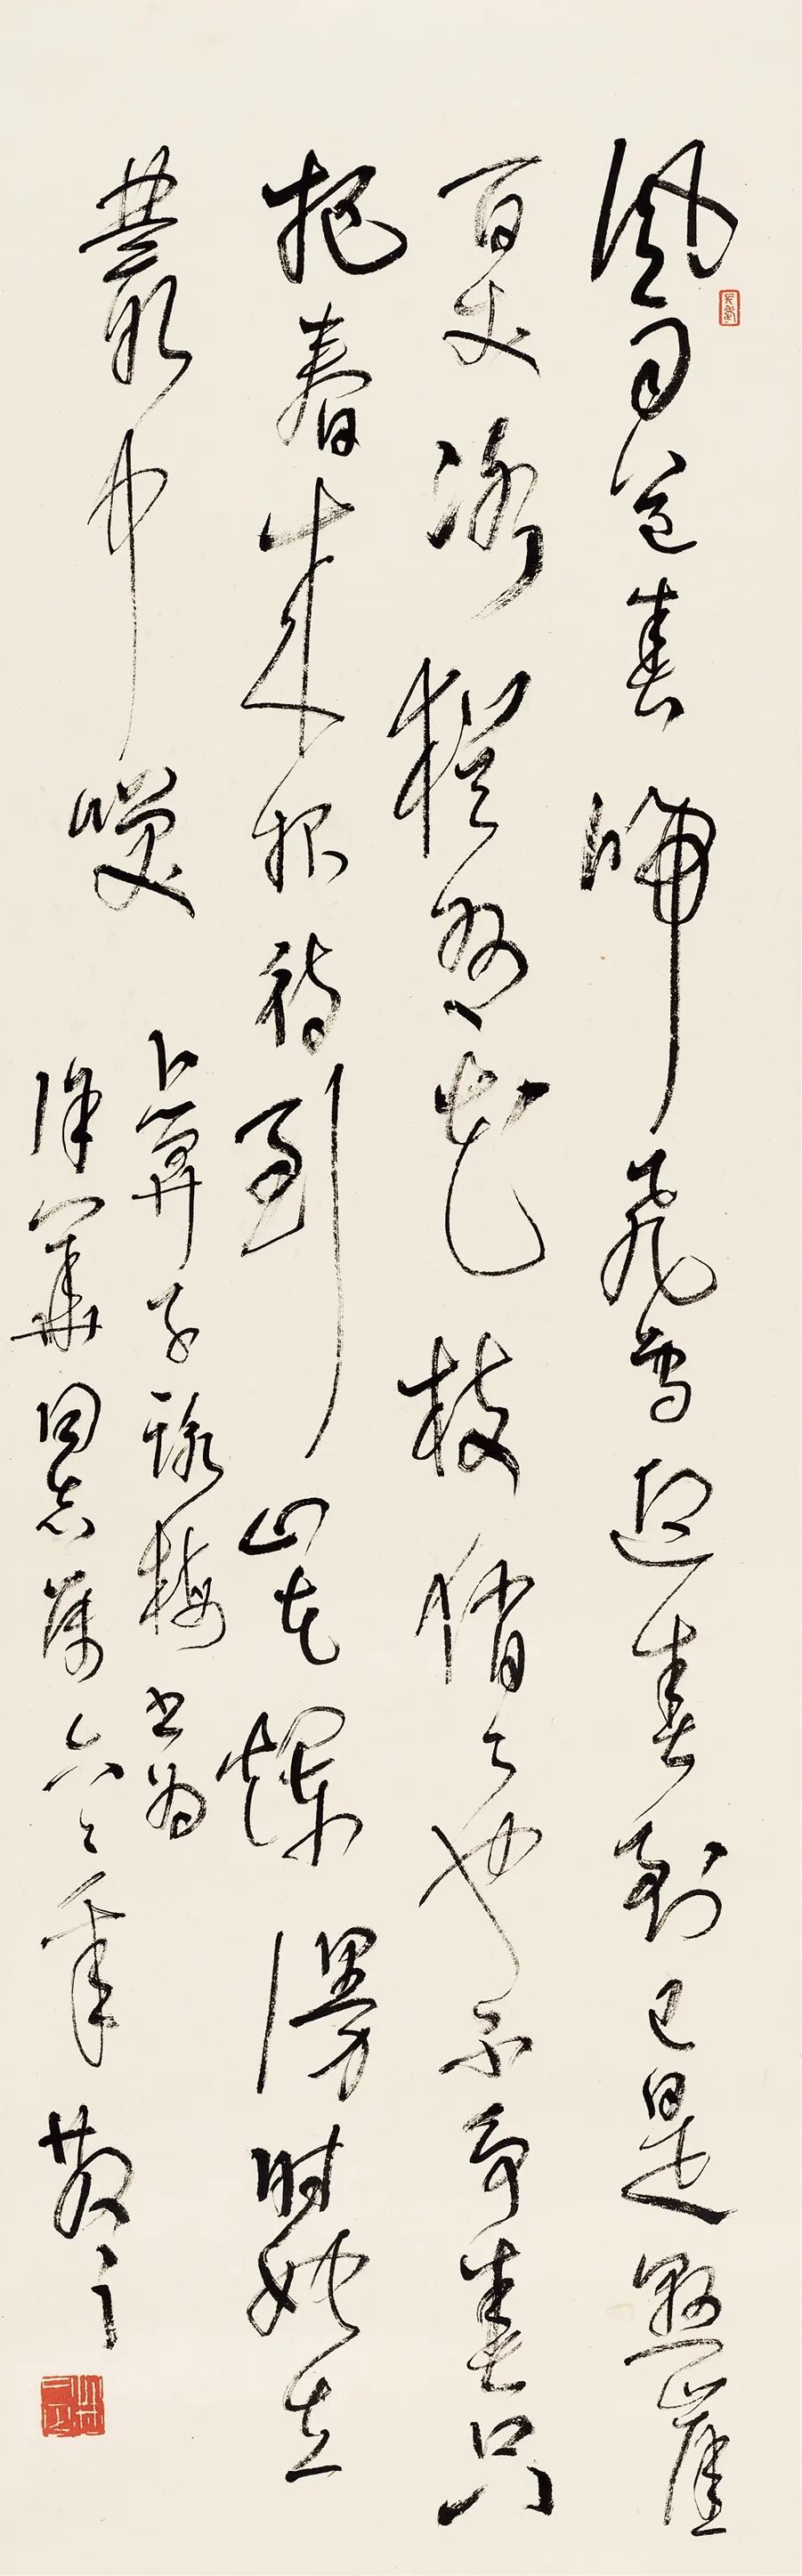 風雨送春歸飛雪迎春到已是懸崖
百丈冰猶有花枝俏〻也不爭春只
把春來報待到山花爛漫時她在
叢中笑
卜算子詠梅書為
華同志屬六〻年散之